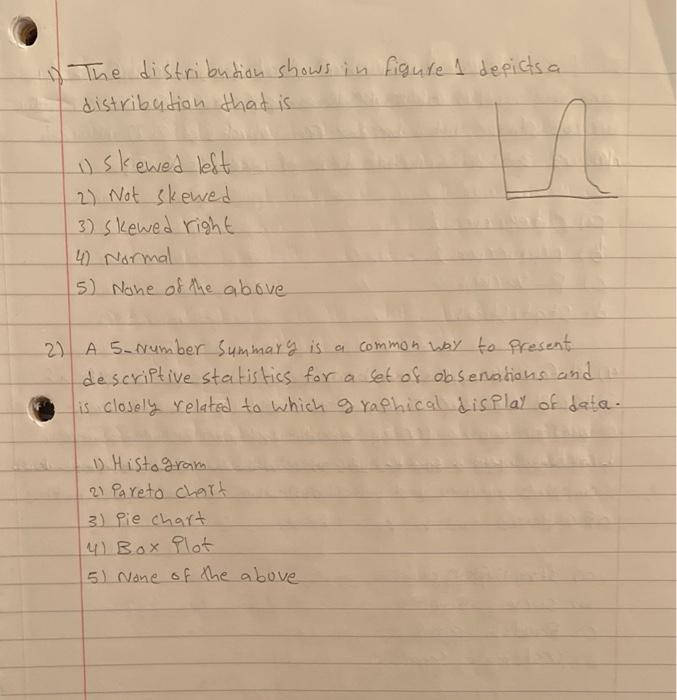 1) The distribution shows in figure 1 depicts a
distribution that is
1) Skewed left
2) Not skewed
3) skewed right
4) Normal
5) None of the above
2) A 5-number summary is a common way to present
descriptive statistics for a set of observations and
is closely related to which graphical display of data.
1) Histogram
2) Pareto chart
3) Pie chart
4) Box Plot
5) None of the above